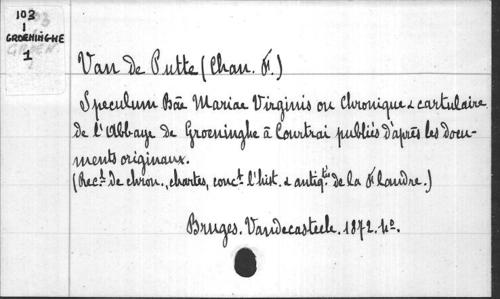 103
1
GROENINGHE
1
Van de Putte (Chan. F.)
Speculum Bāe Mariae Virginis ou Chronique & cartulaire
de l'Abbaye de Groeninghe à Courtrai publiés d'après les docu-
ments originaux.
(Rec.l de chron., chartes, conc.t l'hist. & antiq.tés de la Flandre.)
Bruges. Vandecasteele. 1872. 4o.